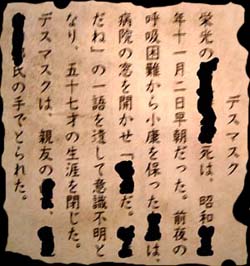 デスマスク
栄光の死は、昭和
年十一月二日早朝だった。前夜の
呼吸困難から小康を保ったは、
病院の窓を開かせ「だ。
だね」の一語を遺して意識不明と
なり、五十七才の生涯を閉じた。
デスマスクは、親友の、
氏の手でとられた。